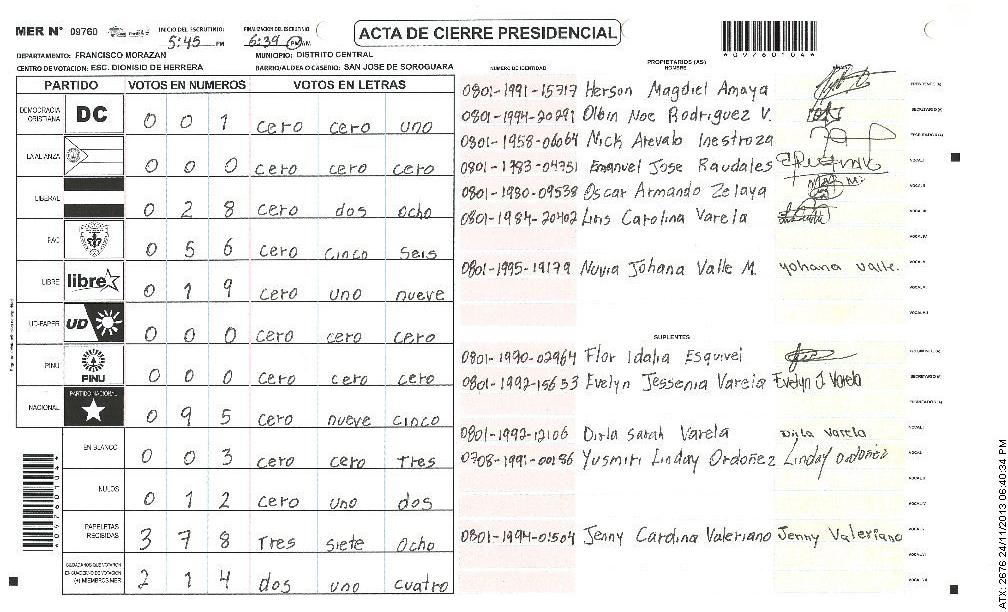 MER N° 09760 INICIO DEL ESCRUTINIO: 5:45 PM FINALIZACION DEL ESCRUTINIO 6:39 PM
ACTA DE CIERRE PRESIDENCIAL
*09760104*
DEPARTAMENTO: FRANCISCO MORAZAN MUNICIPIO: DISTRITO CENTRAL
CENTRO DE VOTACION: ESC. DIONISIO DE HERRERA BARRIO/ALDEA O CASERIO: SAN JOSE DE SOROGUARA
PARTIDO VOTOS EN NUMEROS VOTOS EN LETRAS
DEMOCRACIA CRISTIANA DC 0 0 1 cero cero uno
LA ALIANZA 0 0 0 cero cero cero
LIBERAL 0 2 8 cero dos ocho
PAC 0 5 6 cero cinco seis
LIBRE libre 0 1 9 cero uno nueve
UD-FAPER UD 0 0 0 cero cero cero
PINU PINU 0 0 0 cero cero cero
NACIONAL PARTIDO NACIONAL 0 9 5 cero nueve cinco
EN BLANCO 0 0 3 cero cero Tres
NULOS 0 1 2 cero uno dos
PAPELETAS RECIBIDAS 3 7 8 Tres siete ocho
CIUDADANOS QUE VOTARON EN CUADERNO DE VOTACION (+) MIEMBROS MER 2 1 4 dos uno cuatro
*09760104*
NUMERO DE IDENTIDAD PROPIETARIOS (AS) NOMBRE
0801-1991-15717 Herson Magdiel Amaya PRESIDENTE (A)
0801-1994-20291 Olbin Noe Rodriguez V. SECRETARIO (A)
0801-1958-06064 Nick Arevalo Inestroza ESCRUTADOR (A)
0801-1983-04351 Emanuel Jose Raudales VOCAL I
0801-1980-09538 Oscar Armando Zelaya VOCAL II
0801-1984-20402 Lins Carolina Varela VOCAL III
VOCAL IV
0801-1995-19179 Nuvia Johana Valle M. yohana valle. VOCAL V
VOCAL VI
VOCAL VII
SUPLENTES
0801-1990-02964 Flor Idalia Esquivel PRESIDENTE (A)
0801-1992-15653 Evelyn Jessenia Varela Evelyn J. Varela SECRETARIO (A)
ESCRUTADOR (A)
0801-1992-12106 Dirla Sarah Varela Dirla Varela VOCAL I
0708-1991-00186 Yusmiri Linday Ordoñez Linday ordoñez VOCAL II
VOCAL III
VOCAL IV
0801-1994-01504 Jenny Carolina Valeriano Jenny Valeriano VOCAL V
VOCAL VI
VOCAL VII
ATX: 2676 24/11/2013 06:40:34 PM